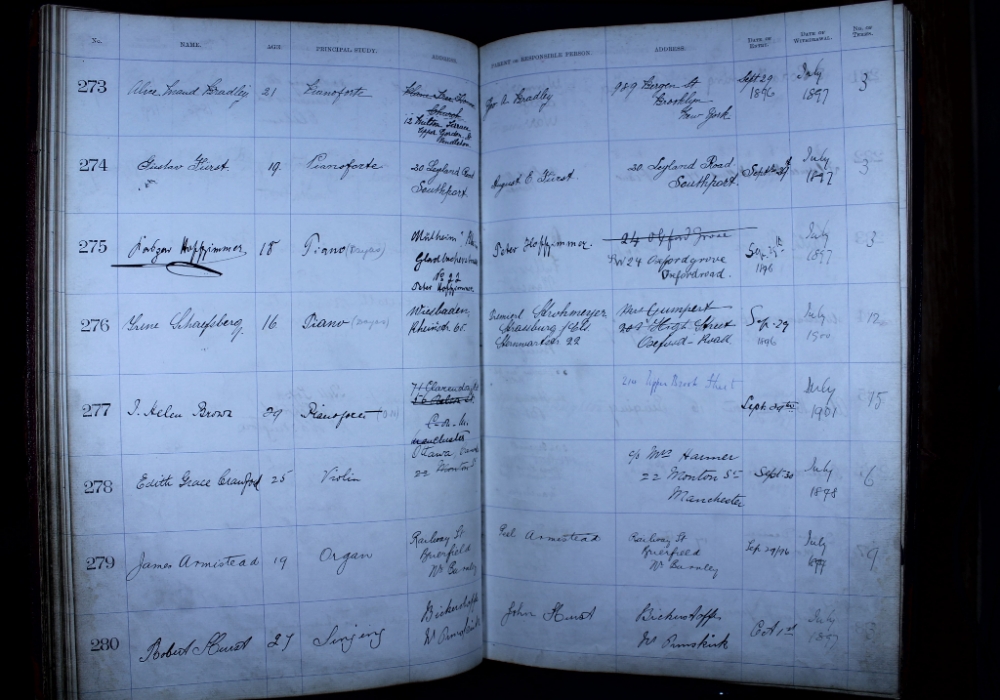 No. NAME. AGE. PRINCIPAL STUDY. ADDRESS. PARENT or RESPONSIBLE PERSON. ADDRESS. DATE OF ENTRY. DATE OF WITHDRAWAL. NO. OF TERMS.
273 Alice Maud Bradley 21 Pianoforte
Upper
Jos A. Bradley
989 Bergen St
Brooklyn
New York
Sept 29
1896
July
1897
3
274 Gustav Fürst 19 Pianoforte
20 Leyland Road
Southport.
August E. Fürst
20 Leyland Road
Southport.
Sept 29
July
1897
3
275 Hoffzimmer 18 Piano (Dayas)
Mülheim
No 22
Peter Hoffzimmer
Peter Hoffzimmer.
24 Oxford Grove
24 Oxford grove
Oxford road.
1896
July
1897
3
276 Irene Schaefsberg 16 Piano (Dayas)
Wiesbaden,
Rheinstr 65.
Strohmeyer
Strassburg
22
Mrs Gumpert
High Street
Oxford-Road
Sep. 29
1896
July
1900
12
277 J. Helen Brown 29 Pianoforte
Manchester
Upper Brook Street
Sept. 29th
July
1901
15
278 Edith Grace Crawford 25 Violin
22 Monton St
c/o Mrs Harmer
22 Monton St
Manchester
Sept 30
July
1898
6
279 James Armistead 19 Organ
Railway St
Brierfield
Nr Burnley
Armistead
Railway St
Brierfield
Nr Burnley
Sep. 29/96
July
1899
9
280 Robert Hurst 27 Singing
Bickerstaffe
Nr Ormskirk
John Hurst
Bickerstaffe
Nr Ormskirk
Oct 1st
July
1897
3